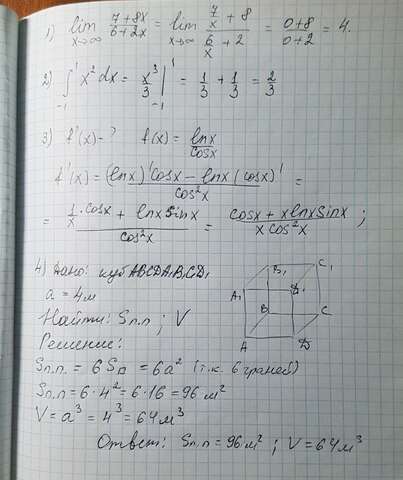 1) lim x→∞ (7+8x)/(6+2x) = lim x→∞ (7/x + 8)/(6/x + 2) = (0+8)/(0+2) = 4.
2) ∫₋₁¹ x² dx = x³/3 |₋₁¹ = 1/3 + 1/3 = 2/3
3) f'(x) - ? f(x) = lnx/cosx
f'(x) = ((lnx)'cosx - lnx(cosx)')/cos²x =
= (1/x · cosx + lnx sinx)/cos²x = (cosx + x lnx sinx)/(x cos²x) ;
4) Дано: куб ABCDA₁B₁C₁D₁
a = 4м
Найти: Sп.п ; V
Решение:
B₁ C₁
A₁ D₁
B C
A D
Sп.п. = 6S□ = 6a² (т.к. 6 граней)
Sп.п = 6·4² = 6·16 = 96 м²
V = a³ = 4³ = 64 м³
Ответ: Sп.п = 96 м² ; V = 64 м³